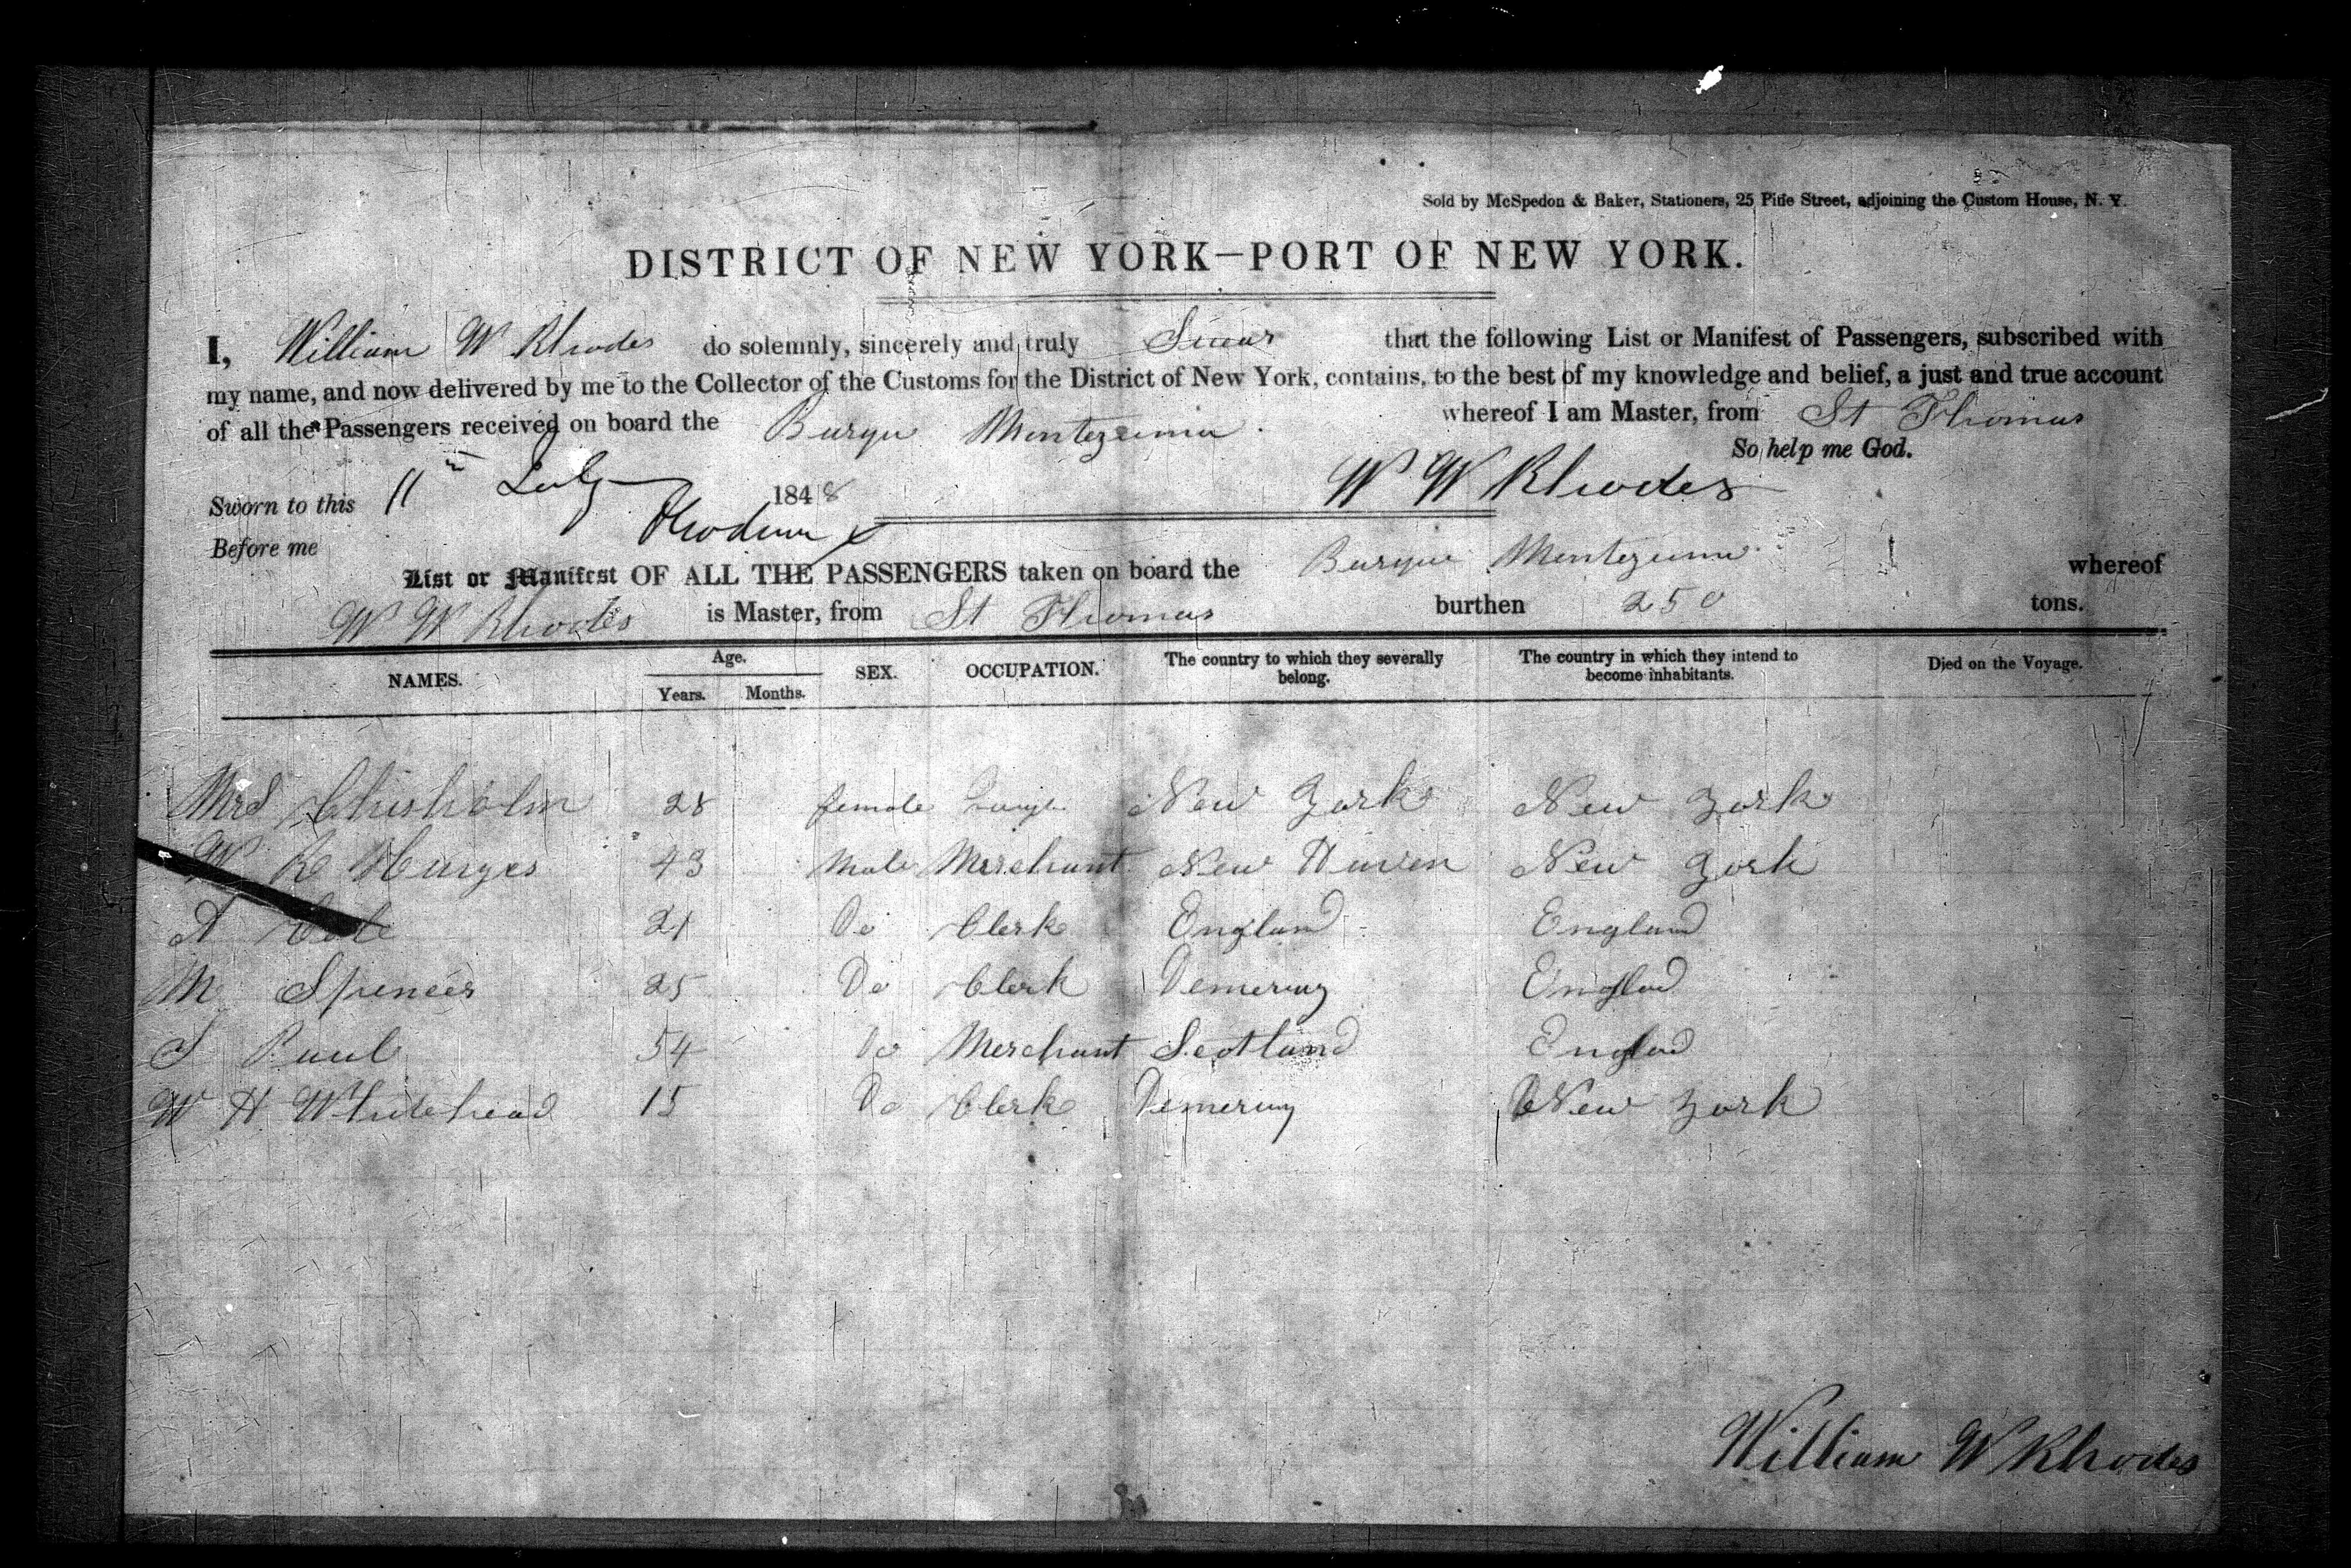 Sold by McSpedon & Baker, Stationers, 25 Pine Street, adjoining the Custom House, N. Y.
DISTRICT OF NEW YORK—PORT OF NEW YORK.
I, William W Rhodes do solemnly, sincerely and truly Swear that the following List or Manifest of Passengers, subscribed with
my name, and now delivered by me to the Collector of the Customs for the District of New York, contains, to the best of my knowledge and belief, a just and true account
of all the Passengers received on board the Barque Montezuma whereof I am Master, from St Thomas
So help me God.
Sworn to this 11th July 1848 W W Rhodes
Before me
List or Manifest OF ALL THE PASSENGERS taken on board the Barque Montezuma whereof
W W Rhodes is Master, from St Thomas burthen 250 tons.
NAMES. Age. Years. Months. SEX. OCCUPATION. The country to which they severally belong. The country in which they intend to become inhabitants. Died on the Voyage.
Mrs Chisholm 28 female New York New York
W R 43 Male Merchant New Haven New York
A 21 Do Clerk England England
M Spencer 25 Do Clerk Demeray Englad
S Paul 54 Do Merchant Scotland Englad
W H Whitehead 15 Do Clerk Demeray New York
William W Rhodes